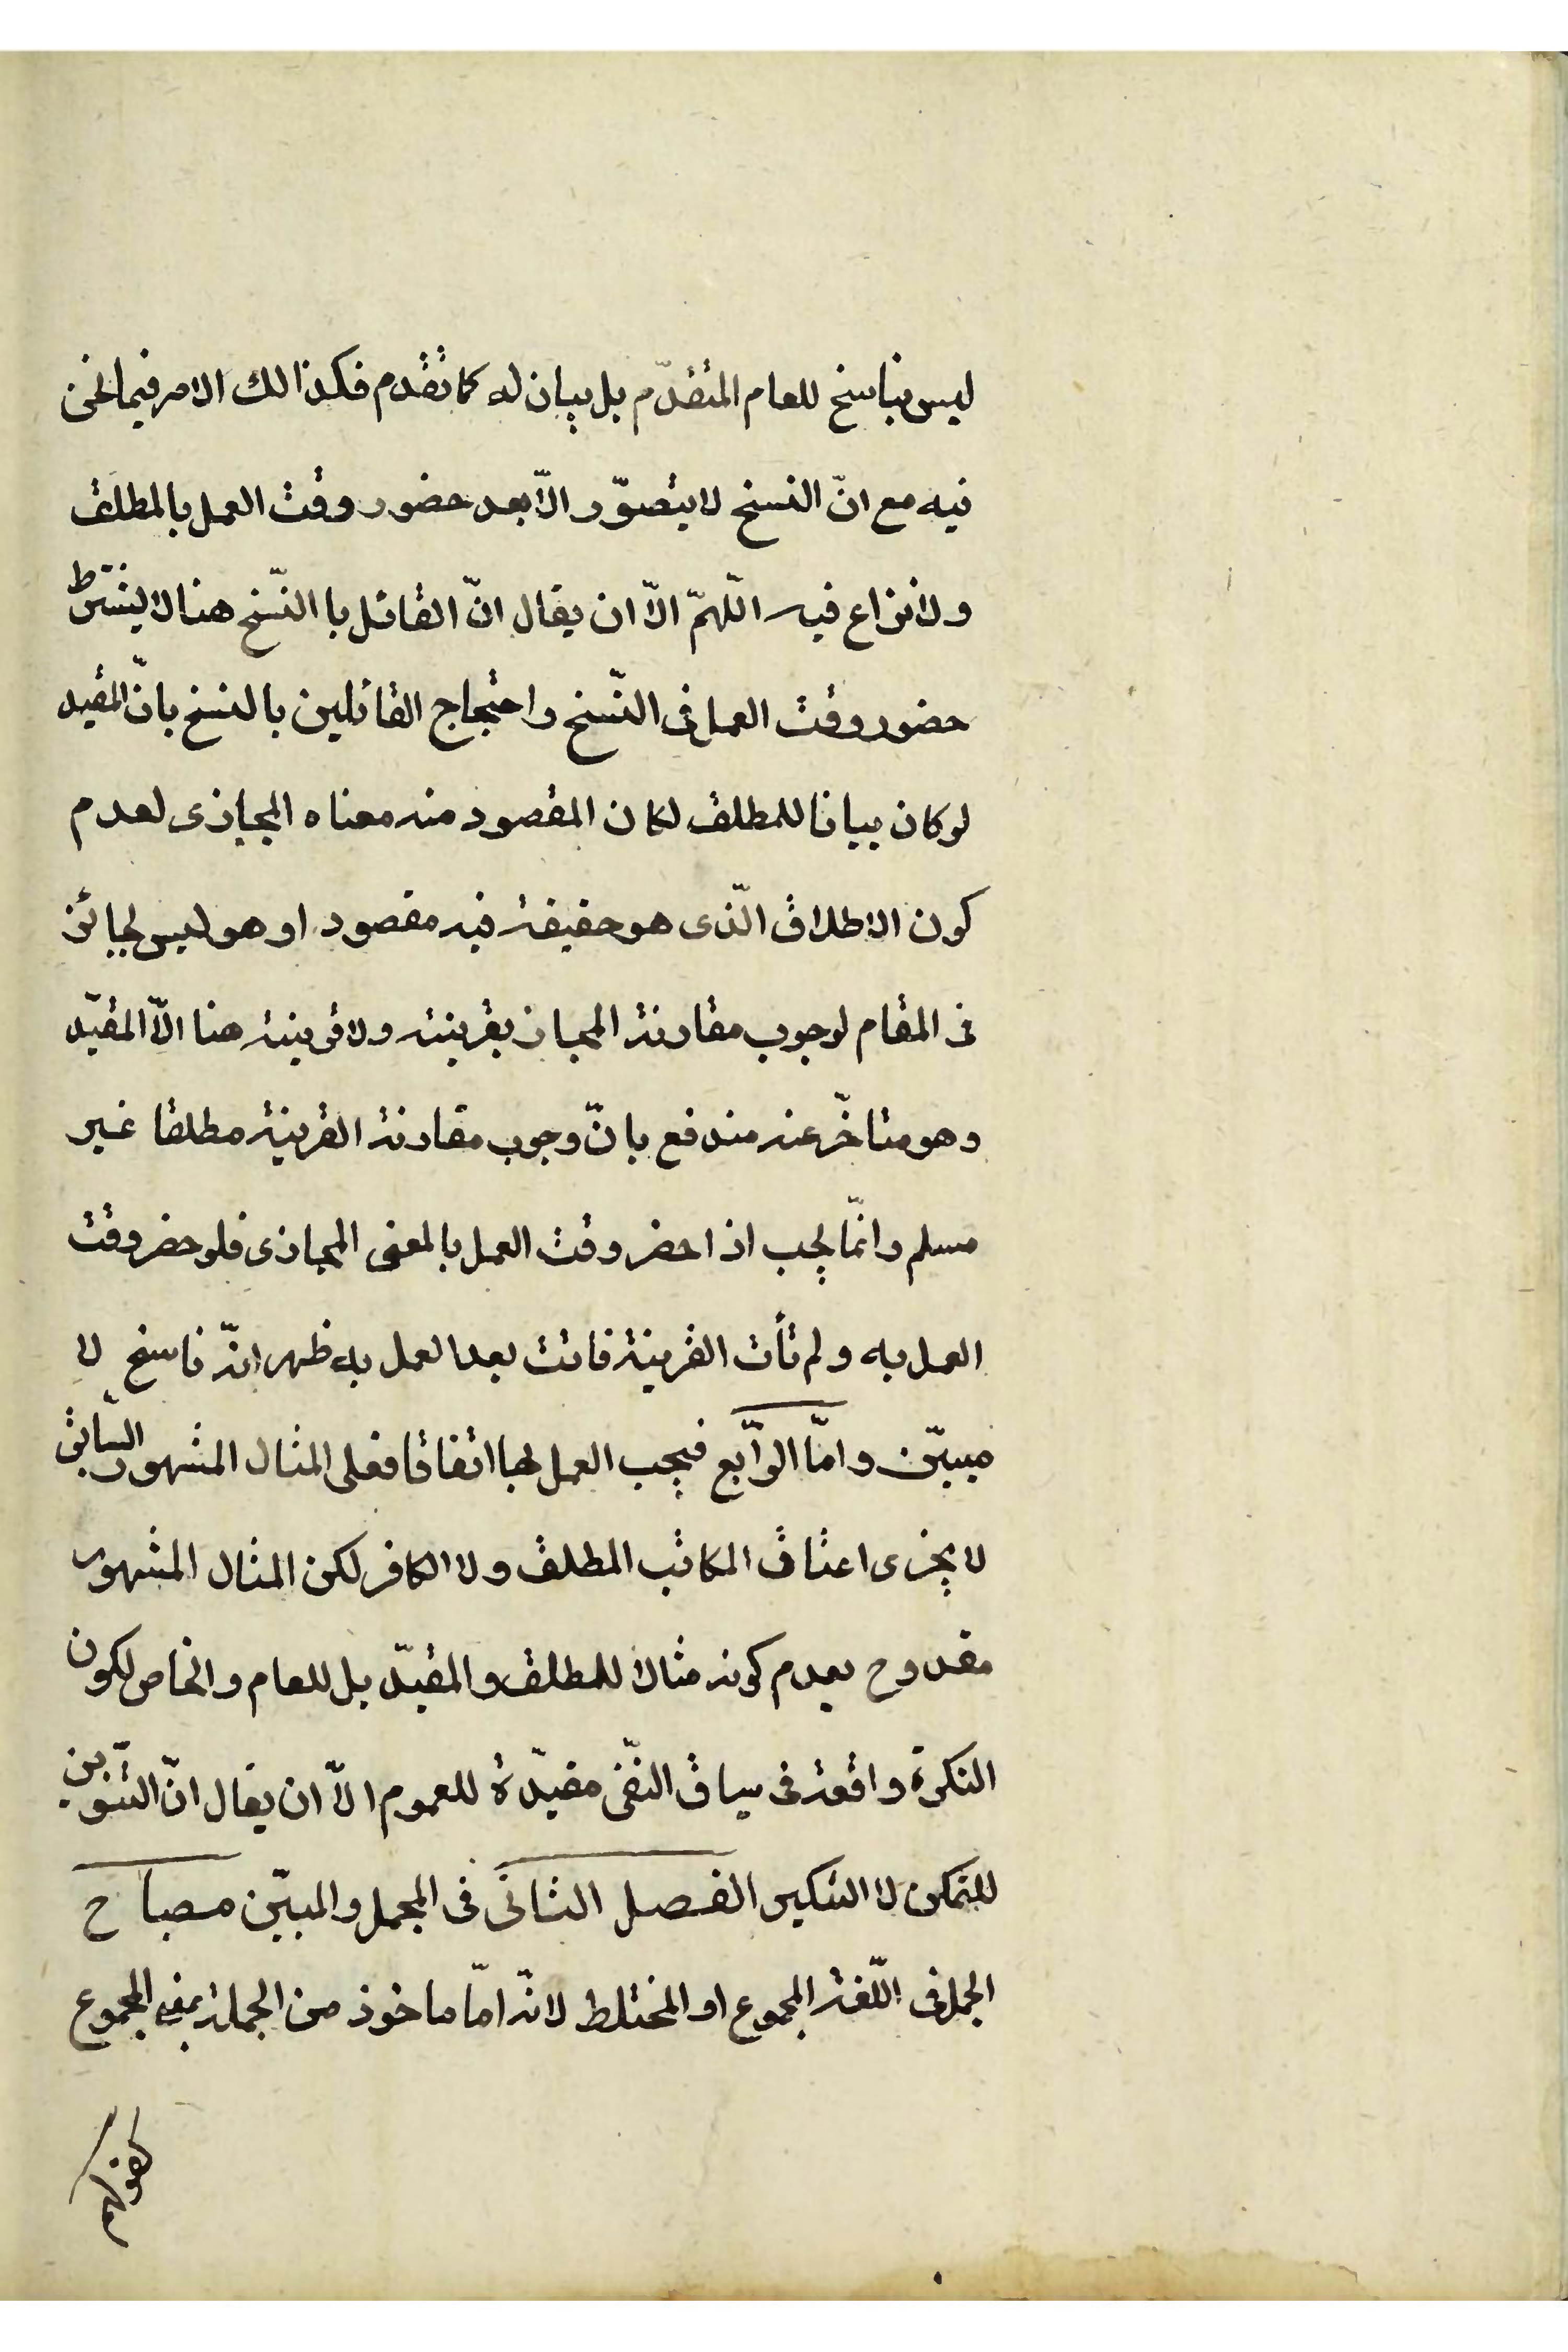 ليس بناسخ للعام المتقدّم بل بيان له كما تقدم فكذالك الامر فيما نحن
فيه مع انّ النسخ لا يتصوّر الّا بعد حضور وقت العمل بالمطلق
ولا نزاع فيه اللّهمّ الّا ان يقال انّ القائل با النّسخ هنا لا يشترط
حضور وقت العمل فى النّسخ واحتجاج القائلين بالنسخ بانّ المقيد
لو كان بيانا للمطلق لكان المقصود منه معناه المجازى لعدم
كون الاطلاق الّذى هو حقيقة فيه مقصود او هو ليس بجائز
فى المقام لوجوب مقارنة المجاز بقرينة ولا قرينة هنا الّا المقيّد
وهو متاخّر عنه مندفع بانّ وجوب مقارنة القرينة مطلقا غير
مسلم وانّما يجب اذا حضر وقت العمل بالمعنى المجازى فلو حضر وقت
العمل به ولم تأت القرينة فاتت بعد العمل به ظهر انّه ناسخ لا
مبيّن وامّا الرّابع فيجب العمل بها اتفاقا فعلى المثال المشهور السّابق
لا يجزى اعتاق المكاتب المطلق ولا الكافر لكن المثال المشهور
مقدوح بعدم كونه مثالا للمطلق والمقيّد بل للعام والخاص لكون
النكرة واقعة فى سياق النّفى مفيدة للعموم الّا ان يقال انّ التنوين
للتمكن لا التنكير الفصل الثانى فى المجمل والمبيّن مصباح
المجمل فى اللّغة المجموع او المختلط لانّه امّا ماخوذ من الجملة بمعنى المجموع
كقولهم